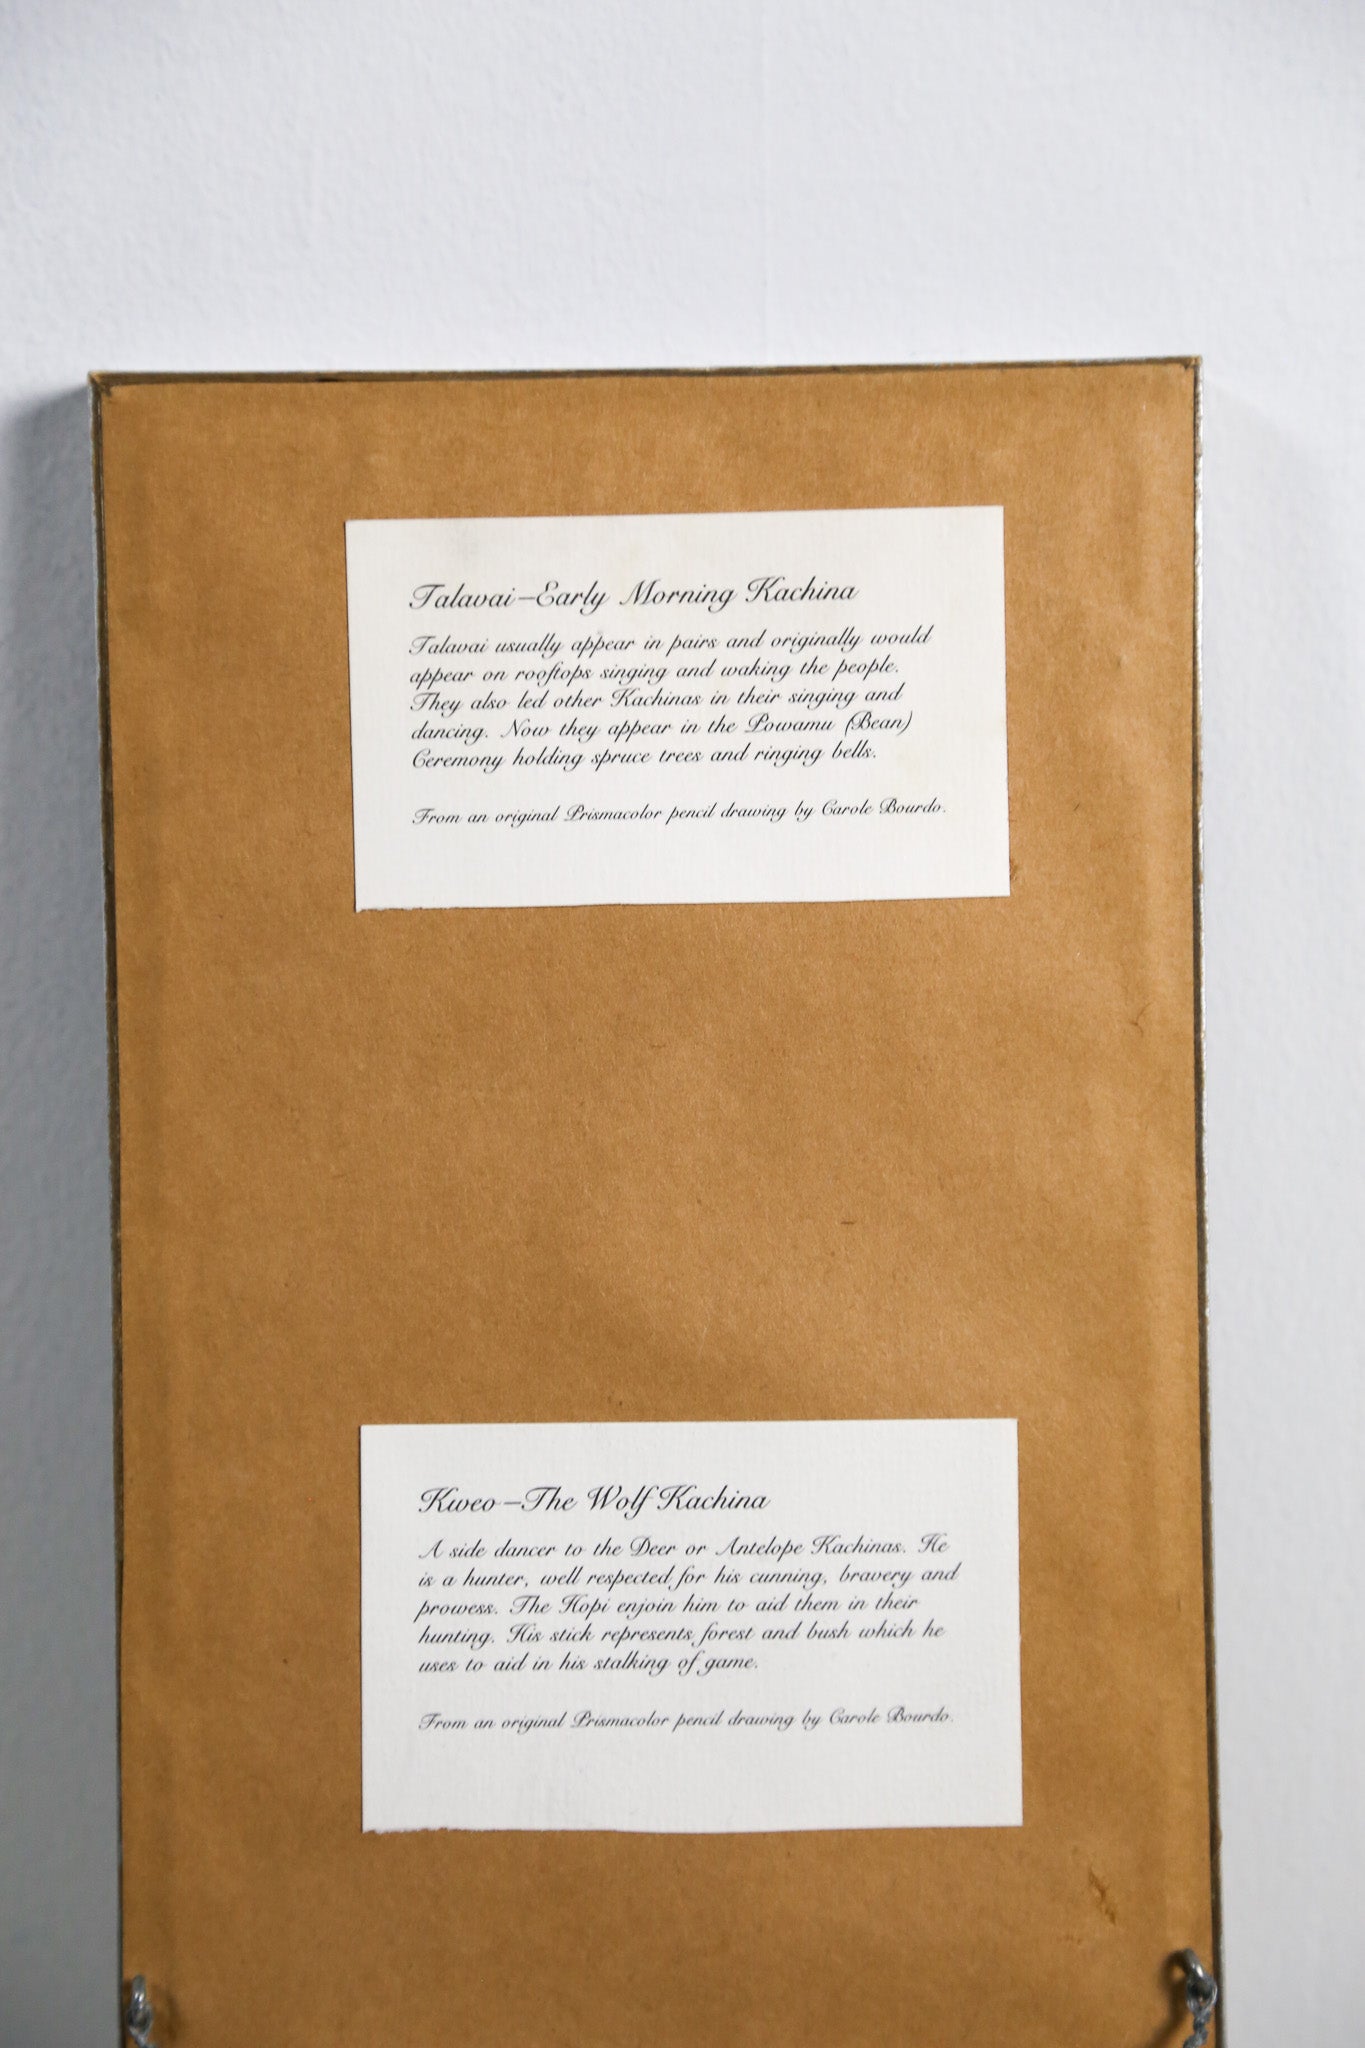 Talavai—Early Morning Kachina
Talavai usually appear in pairs and originally would
appear on rooftops singing and waking the people.
They also led other Kachinas in their singing and
dancing. Now they appear in the Powamu (Bean)
Ceremony holding spruce trees and ringing bells.
From an original Prismacolor pencil drawing by Carole Bourdo.
Kweo—The Wolf Kachina
A side dancer to the Deer or Antelope Kachinas. He
is a hunter, well respected for his cunning, bravery and
prowess. The Hopi enjoin him to aid them in their
hunting. His stick represents forest and bush which he
uses to aid in his stalking of game.
From an original Prismacolor pencil drawing by Carole Bourdo.